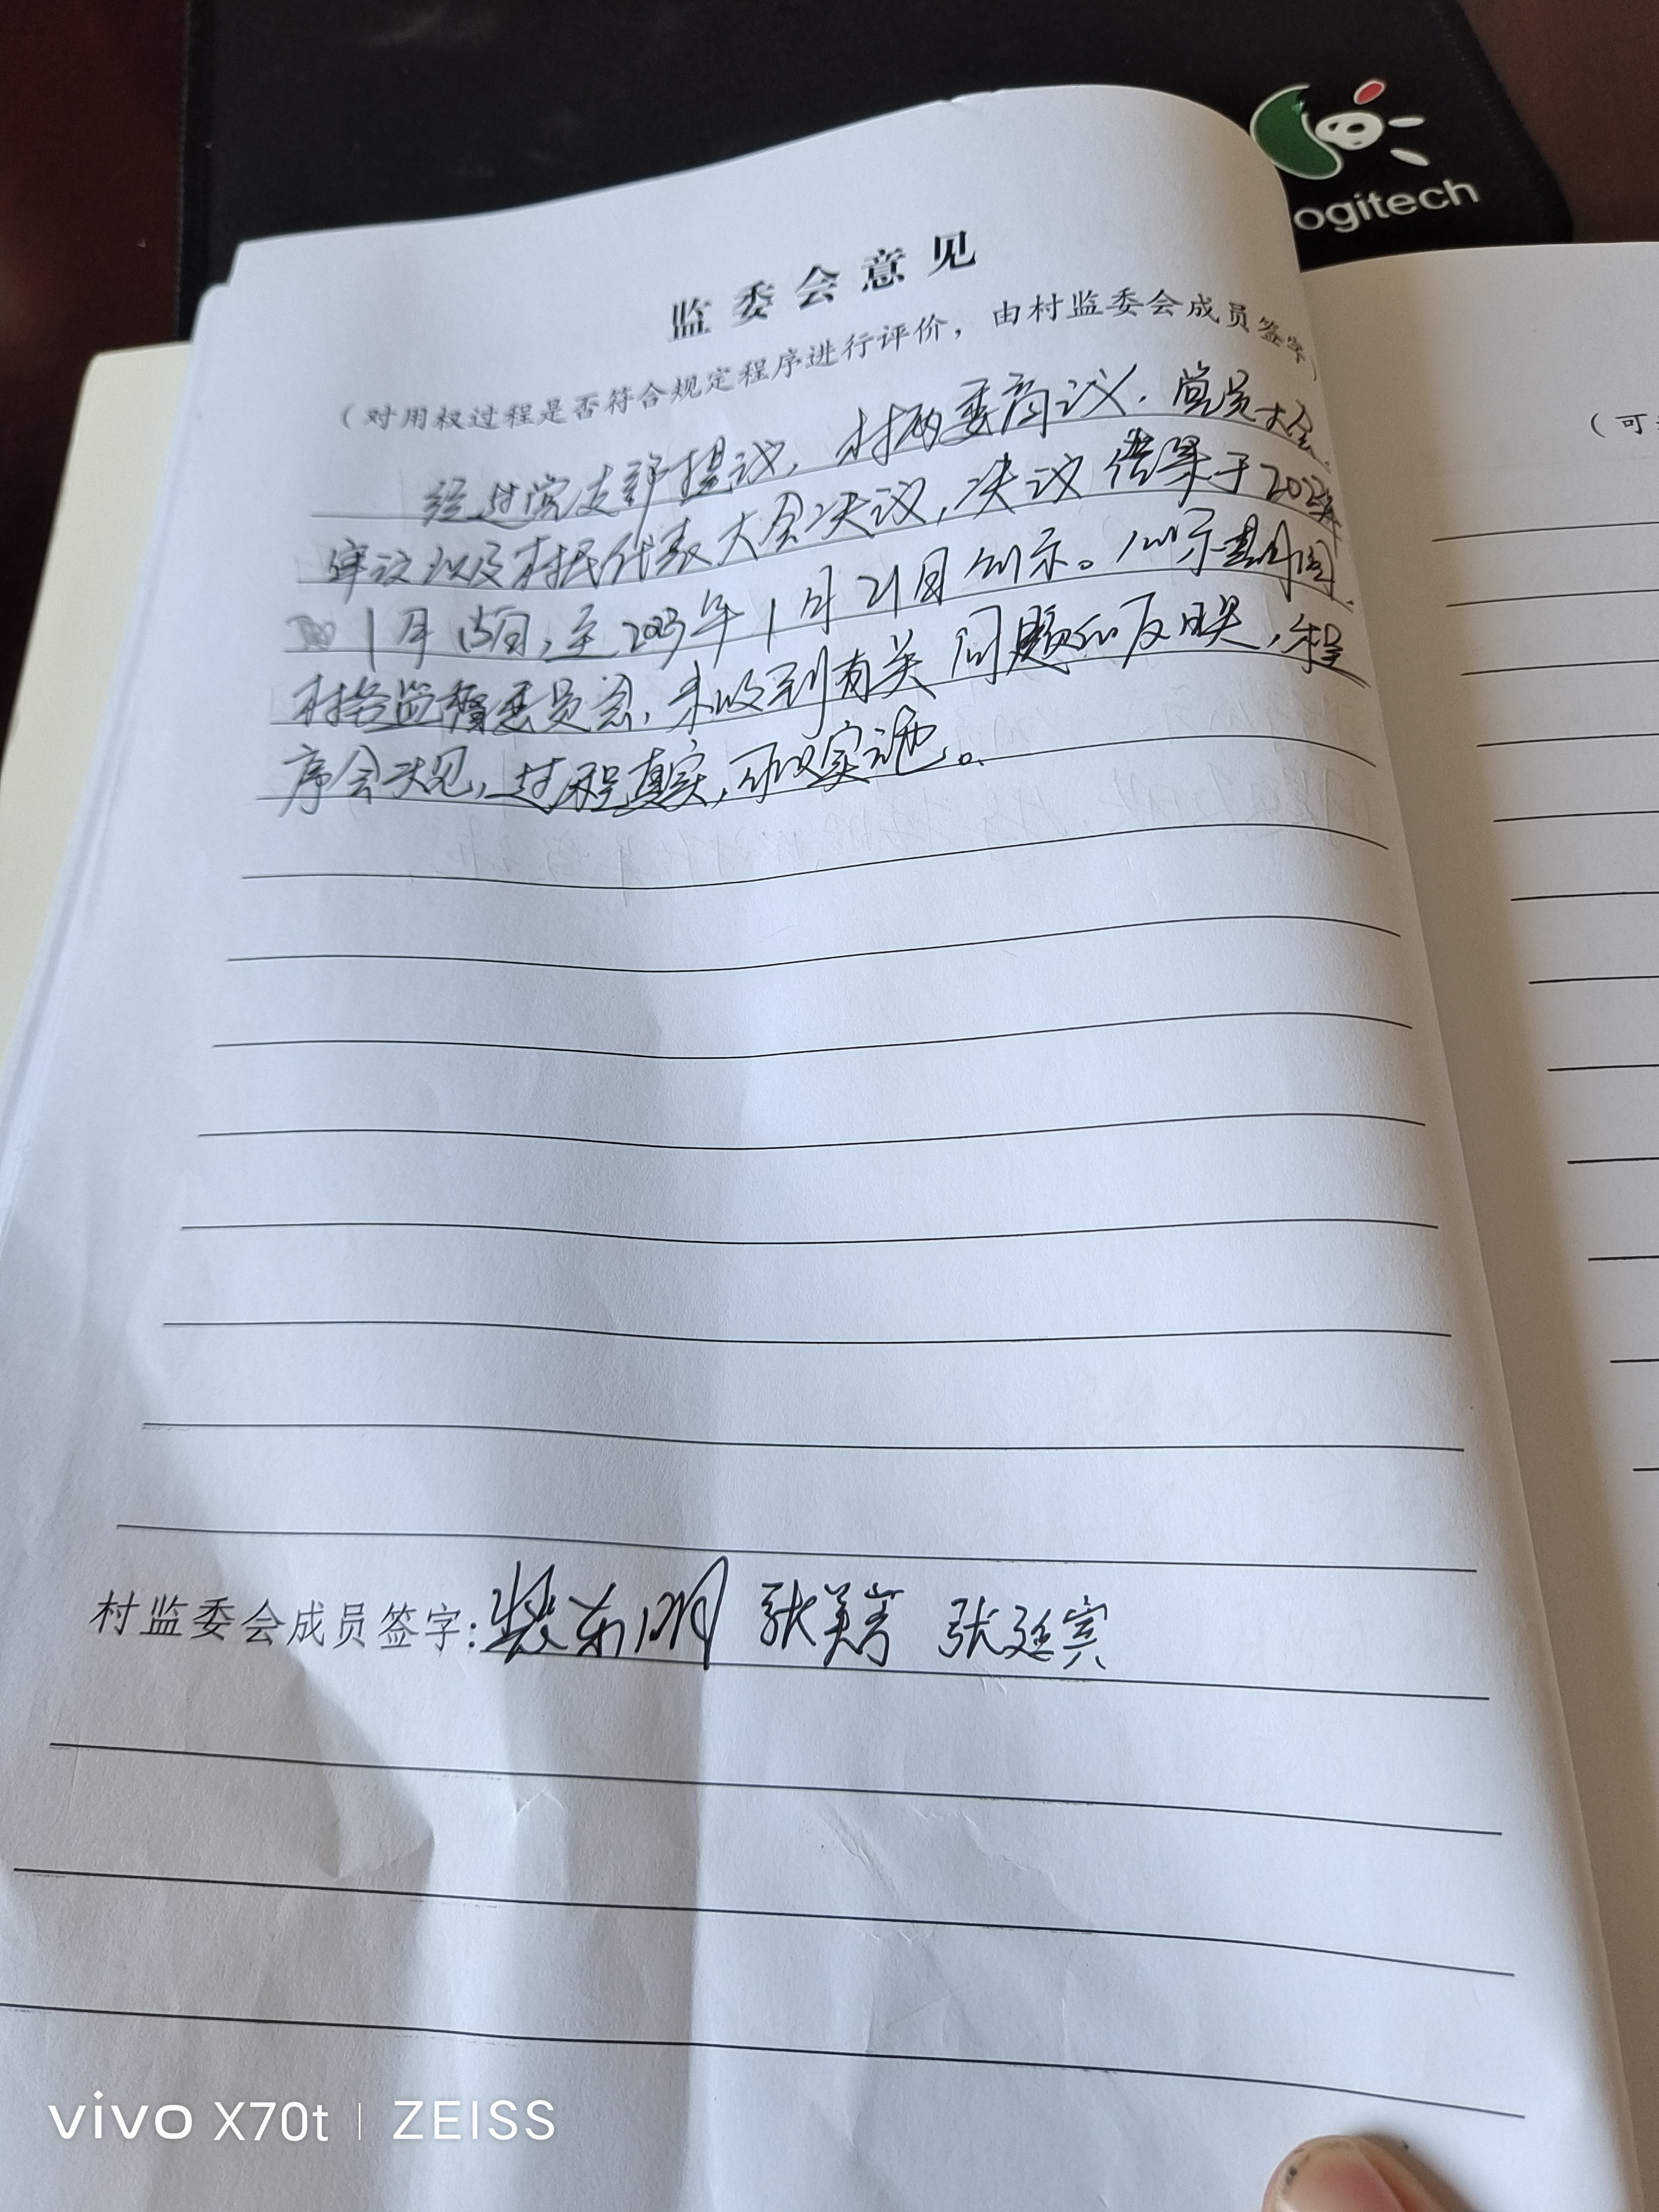 ogitech
监委会意见
（对用权过程是否符合规定程序进行评价，由村监委会成员签字）
经过党支部提议，村两委商议，党员大会
审议以及村民代表大会决议，决议结果于2023年
1月15日，至2023年1月21日公示。公示期间，
村务监督委员会，未收到有关问题的反映，程
序合规，过程真实，可以实施。
村监委会成员签字：张东明 张美芳 张延宾
（可
vivo X70t | ZEISS